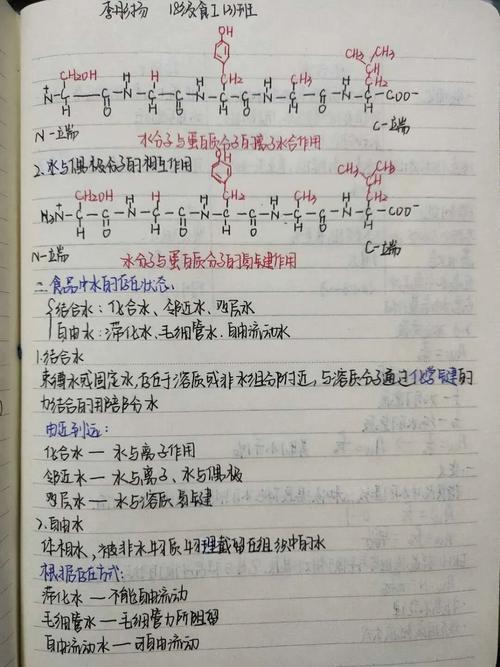 18级食工(3)班
OH
CH₂OH CH₂ CH₃ CH₃
N⁺ C C N C C N C C N C C N C COO⁻
N-端 C-端
水分子与蛋白质分子的离子水合作用
2.水与偶极分子的相互作用
OH
CH₂OH CH₂ CH₃ CH₃
H₃N⁺ C C N C C N C C N C C N C COO⁻
N-端 C-端
水分子与蛋白质分子的氢键作用
二.食品中水的存在状态
结合水：化合水、邻近水、多层水
自由水：滞化水、毛细管水、自由流动水
1.结合水
束缚水或固定水,存在于溶质或非水组分附近，与溶质分子通过化学键的
力结合的那部分水
由近到远：
化合水 — 水与离子作用
邻近水 — 水与离子、水与偶极
多层水 — 水与溶质氢键
2.自由水
体相水，被非水物质物理截留在组织中的水
根据存在方式：
滞化水 — 不能自由流动
毛细管水 — 毛细管力所阻留
自由流动水 — 可自由流动